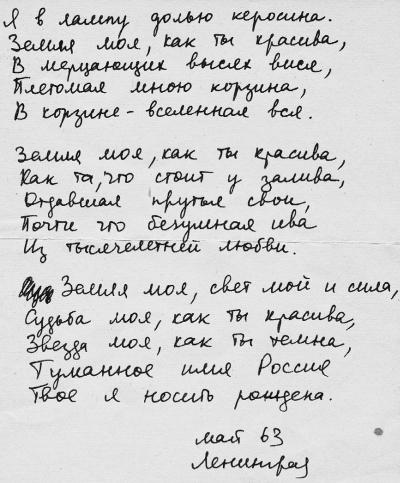 Я в лампу долью керосина.
Земля моя, как ты красива,
В мерцающих высях вися,
Плетомая мною корзина,
В корзине – вселенная вся.
Земля моя, как ты красива,
Как та, что стоит у залива,
Отдавшая прутья свои,
Почти что безумная ива
Из тысячелетней любви.
Земля моя, свет мой и сила,
Судьба моя, как ты красива,
Звезда моя, как ты темна,
Туманное имя Россия
Твоё я носить рождена.
май 63
Ленинград